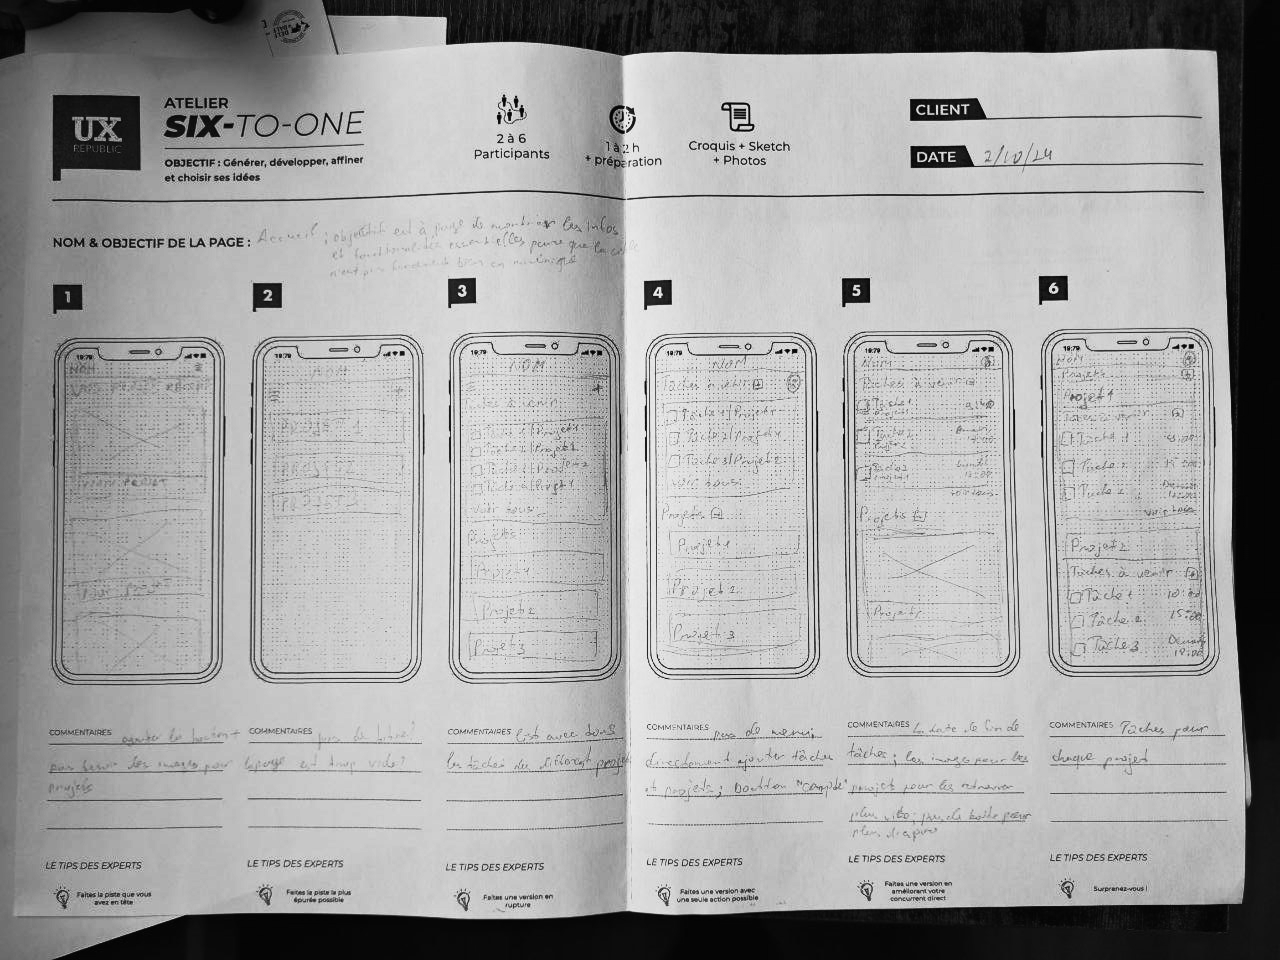 UX
REPUBLIC
ATELIER
SIX-TO-ONE
OBJECTIF : Générer, développer, affiner
et choisir ses idées
2 à 6
Participants
1 à 2 h
+ préparation
Croquis + Sketch
+ Photos
CLIENT
DATE 2/10/24
NOM & OBJECTIF DE LA PAGE : Accueil ; objectif est à les infos
et essentielles pour que la
n'est pas bien
1
19:79
NOM
2
19:79
NOM
PROJET 1
PROJET 2
PROJET 3
3
19:79
NOM
+
Tâches à venir
Tâche 1/Projet 1
Tâche 2/Projet 1
Tâche 3/Projet 2
Tâche 4/Projet 1
Voir tous
Projets
Projet 1
Projet 2
Projet 3
4
19:79
NOM
Tâches à venir +
Tâche 1/Projet 1
Tâche 2/Projet 1
Tâche 3/Projet 2
voir tous
Projets +
Projet 1
Projet 2
Projet 3
5
19:79
NOM
Tâches à venir +
Tâche 1
Projet 1
Tâche 2
Projet 2
Tâche 3
Projet 1
voir tous
Projets +
Projet 1
6
19:79
NOM
Projets +
Projet 1
Tâches à venir +
Tâche 1
Tâche 2
Tâche 3
voir tous
Projet 2
Tâches à venir +
Tâche 1 10:00
Tâche 2 15:00
Tâche 3 Demain
18:00
COMMENTAIRES ajouter le bouton +
pas besoin des images pour
projets
COMMENTAIRES pas de
la page est trop vide?
COMMENTAIRES list avec tous
les tâches des différents projets
COMMENTAIRES pas de menu,
directement ajouter tâches
et projets; boutton "compte"
COMMENTAIRES la date de fin de
tâches; les images pour les
projets pour les retrouver
plus vite; pas de boîte pour
plus d'espace
COMMENTAIRES Tâches pour
chaque projet
LE TIPS DES EXPERTS
Faites la piste que vous
avez en tête
LE TIPS DES EXPERTS
Faites la piste la plus
épurée possible
LE TIPS DES EXPERTS
Faites une version en
rupture
LE TIPS DES EXPERTS
Faites une version avec
une seule action possible
LE TIPS DES EXPERTS
Faites une version en
améliorant votre
concurrent direct
LE TIPS DES EXPERTS
Surprenez-vous !